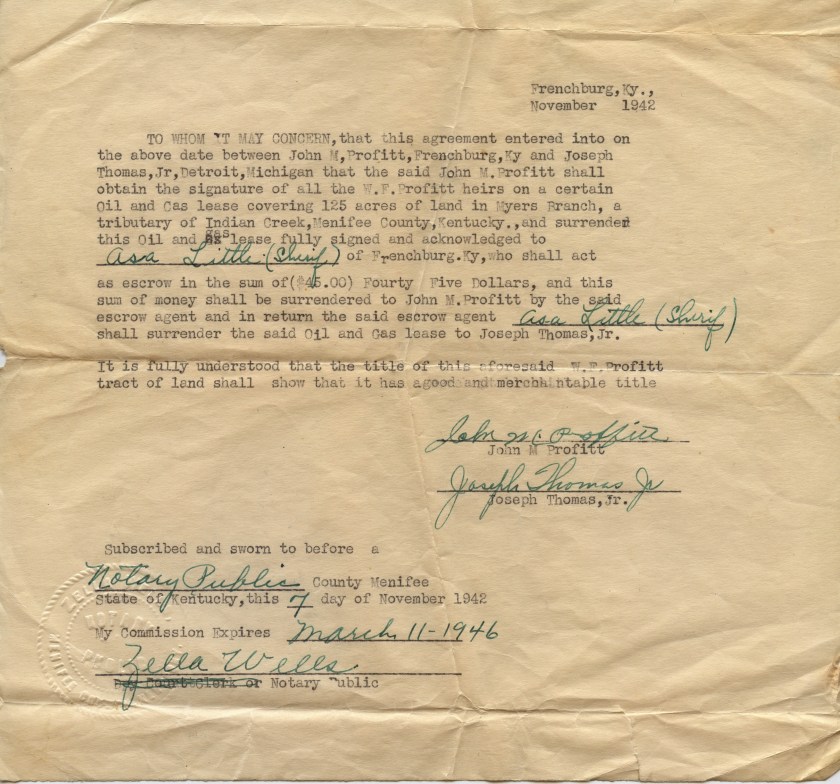 Frenchburg,Ky.,
November 1942
TO WHOM IT MAY CONCERN,that this agreement entered into on
the above date between John M,Profitt,Frenchburg,Ky and Joseph
Thomas,Jr,Detroit,Michigan that the said John M.Profitt shall
obtain the signature of all the W.F.Profitt heirs on a certain
Oil and Gas lease covering 125 acres of land in Myers Branch, a
tributary of Indian Creek,Menifee County,Kentucky.,and surrender
gas
this Oil and lease fully signed and acknowledged to
Asa Little (Sherif) of Frenchburg.Ky,who shall act
as escrow in the sum of($45.00) Fourty Five Dollars, and this
sum of money shall be surrendered to John M.Profitt by the said
escrow agent and in return the said escrow agent Asa Little (Sherif)
shall surrender the said Oil and Gas lease to Joseph Thomas,Jr.
It is fully understood that the title of this aforesaid W.F.Profitt
tract of land shall show that it has agood and merchaintable title
John M. Proffitt
John M Profitt
Joseph Thomas Jr
Joseph Thomas,Jr.
Subscribed and sworn to before a
Notary Public County Menifee
State of Kentucky,this 7 day of November 1942
My Commission Expires March 11-1946
Zella Wells
Court Clerk or Notary Public